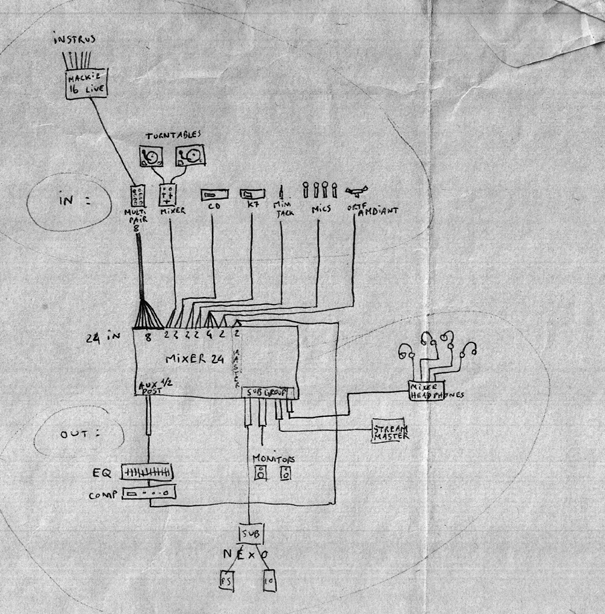 INSTRUS
MACKIE
16 LIVE
TURNTABLES
IN :
MULTI
PAIR
8
MIXER
CD
K7
MINI
JACK
MICS
ORTF
AMBIANT
24 IN
8 2 2 2 2 4 2 2
MIXER 24
MASTER
AUX 1/2
POST
SUB GROUP
MIXER
HEADPHONES
STREAM
MASTER
OUT :
MONITORS
EQ
COMP
SUB
NEXO
PS 10